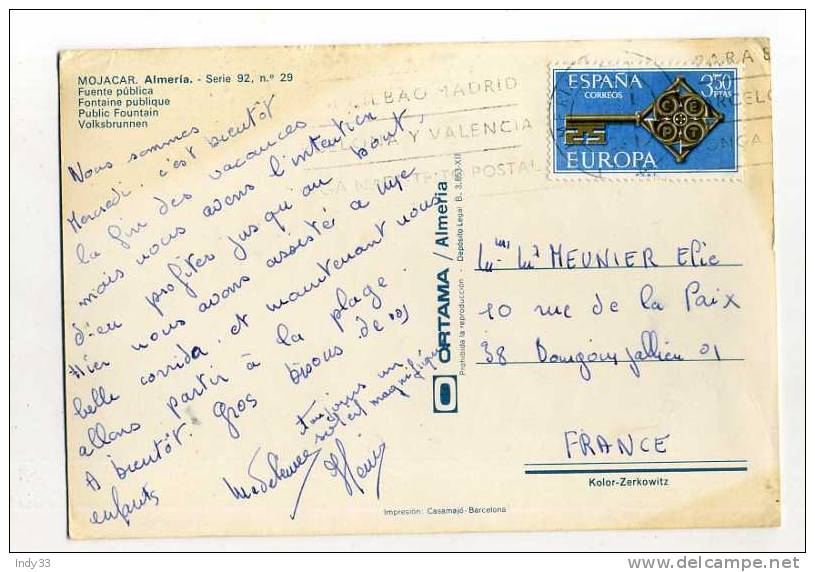 MOJACAR. Almería. - Serie 92, n.º 29
Fuente pública
Fontaine publique
Public Fountain
Volksbrunnen
Nous sommes
Mercredi. c'est bientôt
la fin des vacances
mais nous avons l'intention
d'en profiter jusqu'au bout,
Hier nous avons assisté à une
belle corrida. et maintenant nous
allons partir à la plage.
A bientôt. Gros bisous de vos
enfants
toujours un
soleil magnifique
Madeleine
ORTAMA / Almería
Prohibida la reproducción - Depósito Legal B. 3.853-XII
BILBAO MADRID
Y VALENCIA
POSTAL
ESPAÑA
CORREOS
3,50
PTAS
EUROPA
CEPT
MEUNIER Elie
10 rue de la Paix
38 Bourgoin Jallieu 01
FRANCE
Kolor-Zerkowitz
Impresión: Casamajó-Barcelona
Indy33
delcampe.net